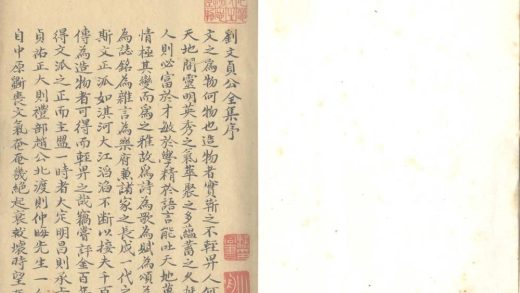 劉文貞公全集序
文之為物何物也造物者實靳之不輕畀人何
天地間靈明英秀之氣萃聚之多蘊蓄之久
人則必富於才敏於學精於語言能吐天地萬
情極其變而為之雅故為詩為歌為賦為頌為
為誌銘為雜言為樂府兼諸家之長成一代之
斯文正派如滇河大江滔滔不斷以接夫千百
傳為造物者可得而輕畀之哉竊嘗評金百年
得文派之正而主盟一時者大定明昌則承
貞祐正大則禮部趙公北渡則仲晦先生一
自中原斷喪文氣奄奄幾絕起衰救壞時望